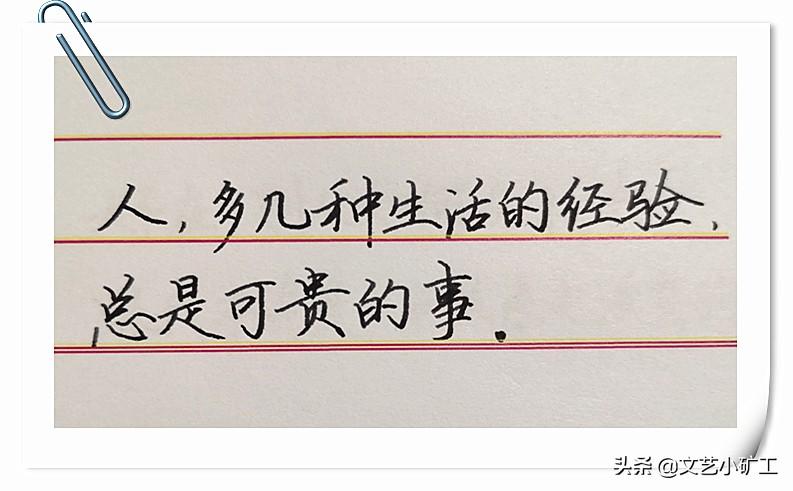 人,多几种生活的经验,
总是可贵的事.
头条 @文艺小矿工